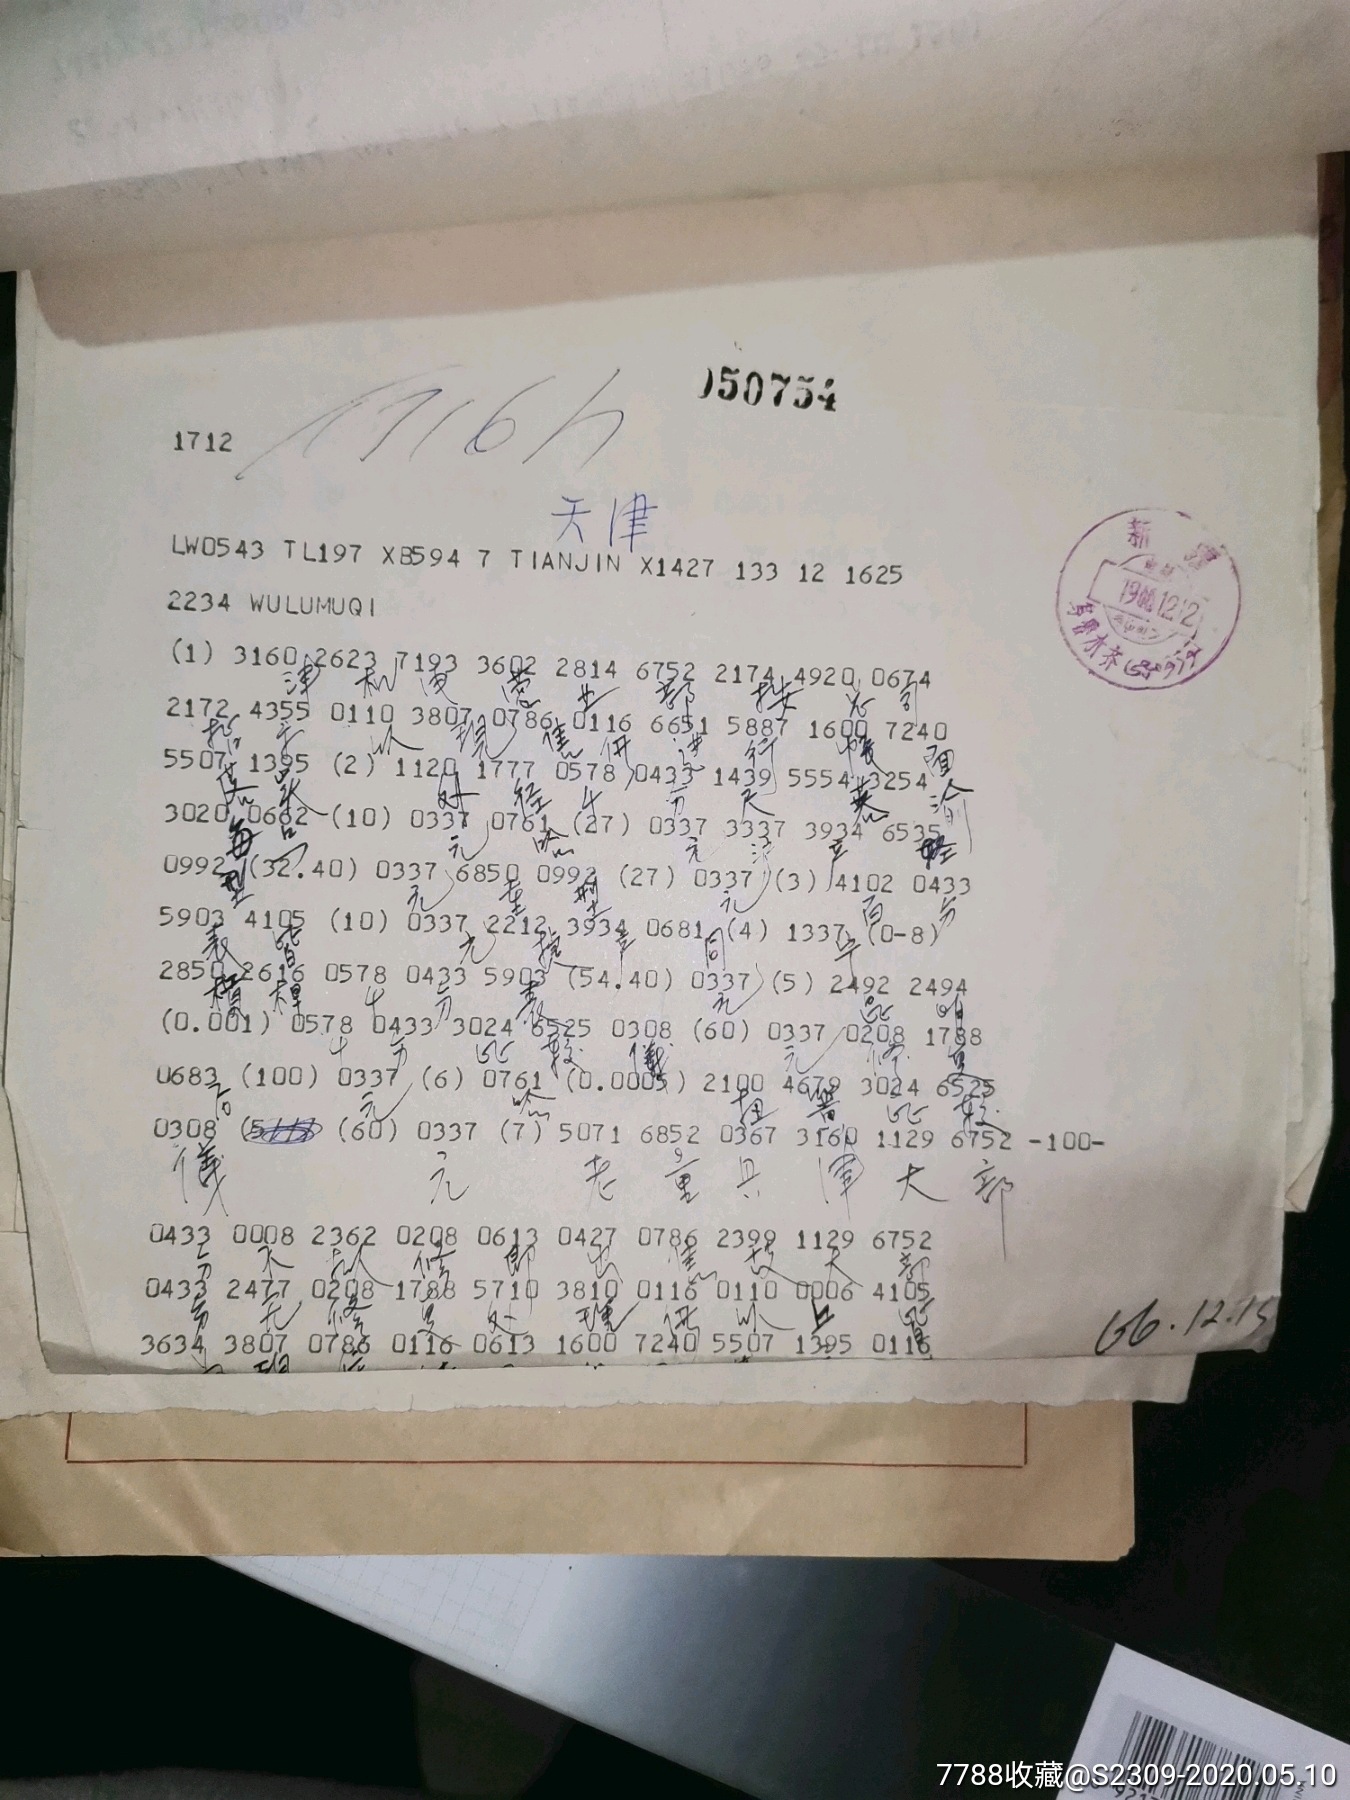 050754
1712 1716
天津
LW0543 TL197 XB594 7 TIANJIN X1427 133 12 1625
2234 WULUMUQI
新疆
1966.12.12
乌鲁木齐
(1) 3160 2623 7193 3602 2814 6752 2174 4920 0674
津 机 营 业 部 按 总 司
2172 4355 0110 3807 0786 0116 6651 5887 1600 7240
招 手 以 现 售 价 进 行 幅 面
5507 1395 (2) 1120 1777 0578 0433 1439 5554 3254
外 径 千 分 尺 英 渝
3020 0662 (10) 0337 0761 (27) 0337 3337 3934 6535
每 名 元 哈 元 沪 辛 轻
0992 (32.40) 0337 6850 0992 (27) 0337 (3) 4102 0433
型 元 重 型 元 百 分
5903 4105 (10) 0337 2212 3934 0681 (4) 1337 (0-8)
表 皆 元 同 宇
2850 2616 0578 0433 5903 (54.40) 0337 (5) 2492 2494
横 桿 千 分 表 元 昆 明
(0.001) 0578 0433 3024 6525 0308 (60) 0337 0208 1788
千 分 比 较 儀 元 修 复
0683 (100) 0337 (6) 0761 (0.0005) 2100 4679 3024 6525
后 元 哈 扭 簧 比 较
0308 (60) 0337 (7) 5071 6852 0367 3160 1129 6752 -100-
儀 元 老 量 具 津 大 部
0433 0008 2362 0208 0613 0427 0786 2399 1129 6752
分 不 修 即 出 售 故 大 部
0433 2477 0208 1788 5710 3810 0116 0110 0006 4105
分 无 修 复 处 理 价 以 上 皆
3634 3807 0786 0116 0613 1600 7240 5507 1395 0116
66.12.13
7788收藏@S2309-2020.05.10